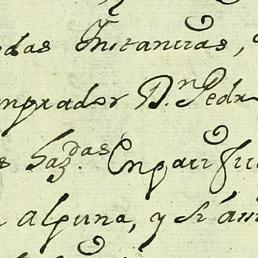 das Instancias,
mprador D.n Pedr
s Haz.das En
alguna, y si